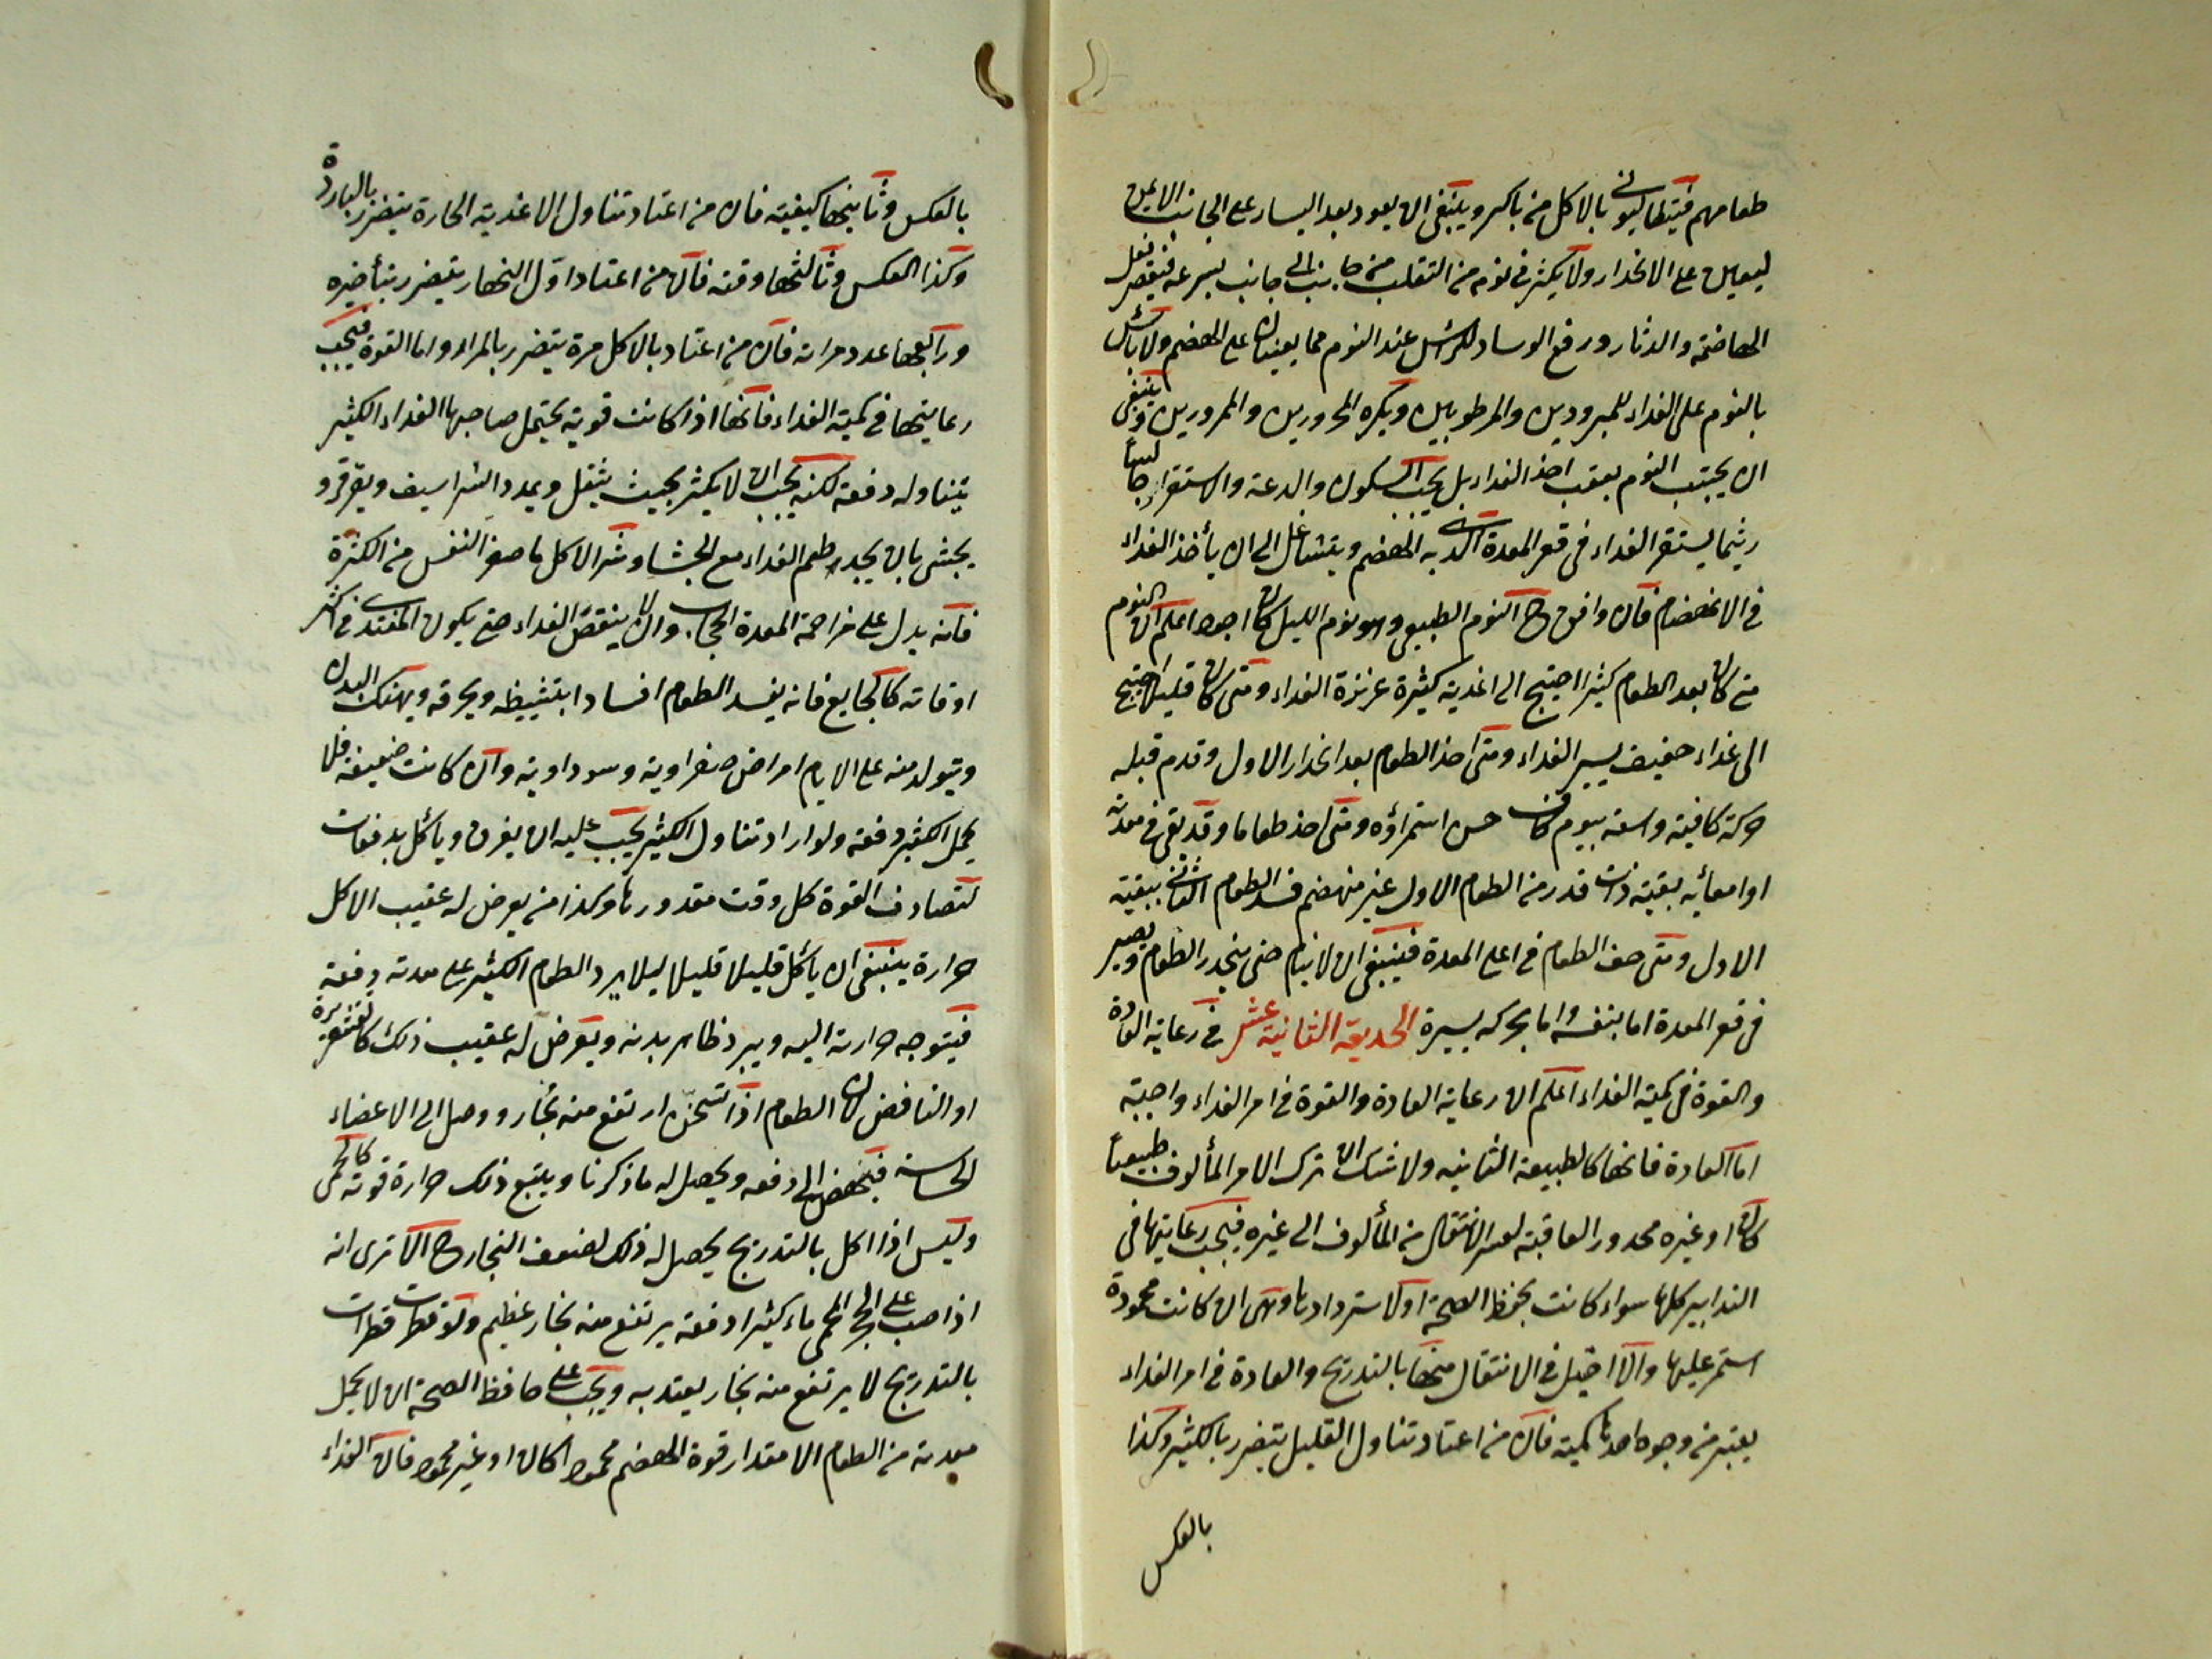 طعامهم فيتطالبون بالاكل من باكر وينبغى ان يعود بعد اليسار على الجانب الايمن
ليعين على الانحدار ولا يكثر فى نومه من التقلب من جانب الى جانب بسرعة فيقصر فعل
الهاضمة والدثار ورفع الوساد للرأس عند النوم مما يعينان على الهضم ولا بأس
بالنوم على الغداء للمبرودين والمرطوبين ويكره للمحرورين والممرورين وينبغى
ان يجتنب النوم بعقب اخذ الغداء بل يجب السكون والدعة والاستقرار
ريثما يستقر الغداء فى قعر المعدة الذى به الهضم ويتشاغل الى ان يأخذ الغداء
فى الانهضام فان وافق ح النوم الطبيعى وهو نوم الليل كان اجود اعلم ان النوم
متى كان بعد الطعام كثيرا احتيج الى اغذية كثيرة غزيزة الغداء ومتى كان قليلا احتيج
الى غداء خفيف يسير الغداء ومتى اخذ الطعام بعد انحدار الاول وقدم قبله
حركة كافية واسعة بيوم كان حسن استمراؤه ومتى اخذ طعاما وقد بقى فى معدته
او امعائه بقية ذات قدر من الطعام الاول غير منهضم فسد الطعام الثانى ببقية
الاول ومتى صف الطعام فى اعلى المعدة فينبغى ان لا ينام حتى ينحدر الطعام ويصير
فى قعر المعدة اما بنفسه واما بحركة يسيرة الحديقة الثانية عشر فى رعاية العادة
والقوة فى كمية الغداء اعلم ان رعاية العادة والقوة فى امر الغداء واجبة
اما العادة فانها كالطبيعة الثانية ولا شك ان ترك الامر المألوف طبيعيا
كان او غيره محدور العاقبة لعسر الانتقال من المألوف الى غيره فيجب رعايتها فى
التدابير كلها سواء كانت بحفظ الصحة او لاستردادها وهى ان كانت محمودة
استمر عليها والا احتيل فى الانتقال منها بالتدريج والعادة فى امر الغداء
يعتبر من وجوه احدها كميته فان من اعتاد تناول القليل يتضرر بالكثير وكذا
بالعكس
بالعكس وثانيها كيفيته فان من اعتاد تناول الاغدية الحارة يتضرر بالباردة
وكذا العكس وثالثها وقته فان من اعتاد اول النهار يتضرر بتأخيره
ورابعها عدد مراته فان من اعتاد بالاكل مرة يتضرر بالمرار واما القوة فيجب
رعايتها فى كمية الغداء فانها اذا كانت قوية يحتمل صاحبها الغداء الكثير
يتناوله دفعة لكنه يجب ان لا يكثر بحيث يثقل ويمدد الشراسيف ويقرقر و
يجشى بان يجد طعم الغداء مع الجشا وشر الاكل ما صغر النفس من الكثرة
فانه يدل على مزاحمة المعدة الحجاب وان لا ينقص الغداء حتى يكون المغتدى فى اكثر
اوقاته كالجايع فانه يفسد الطعام افسادا بتشييطه ويحرقه وينهك البدن
ويتولد منه على الايام امراض صفراوية وسوداوية وان كانت ضعيفة فلا
يحمل الكثير دفعة ولو اراد تناول الكثير يجب عليه ان يفرق ويأكل بدفعات
لتصادف القوة كل وقت مقدورها وكذا من يعرض له عقيب الاكل
حرارة ينبغى ان يأكل قليلا قليلا ليلا يرد الطعام الكثير على معدته دفعة
فيتوجه حرارته اليه ويبرد ظاهر بدنه ويعرض له عقيب ذلك كالقشعريرة
او النافض لان الطعام اذا تسخن ارتفع منه بخار ووصل الى الاعضاء
الحساسة فينهض الى دفعه ويحصل له ما ذكرنا ويتبع ذلك حرارة قوية كالحمى
وليس اذا اكل بالتدريج يحصل له ذلك لضعف البخار ح الا ترى انه
اذا صب على الحجر المحمى ماء كثيرا دفعة يرتفع منه بخار عظيم ولو قطرت قطرات
بالتدريج لا يرتفع منه بخار يعتد به ويجب على حافظ الصحة ان لا يحمل
معدته من الطعام الا مقدار قوة الهضم محمودا كان او غير محمود فان الغداء